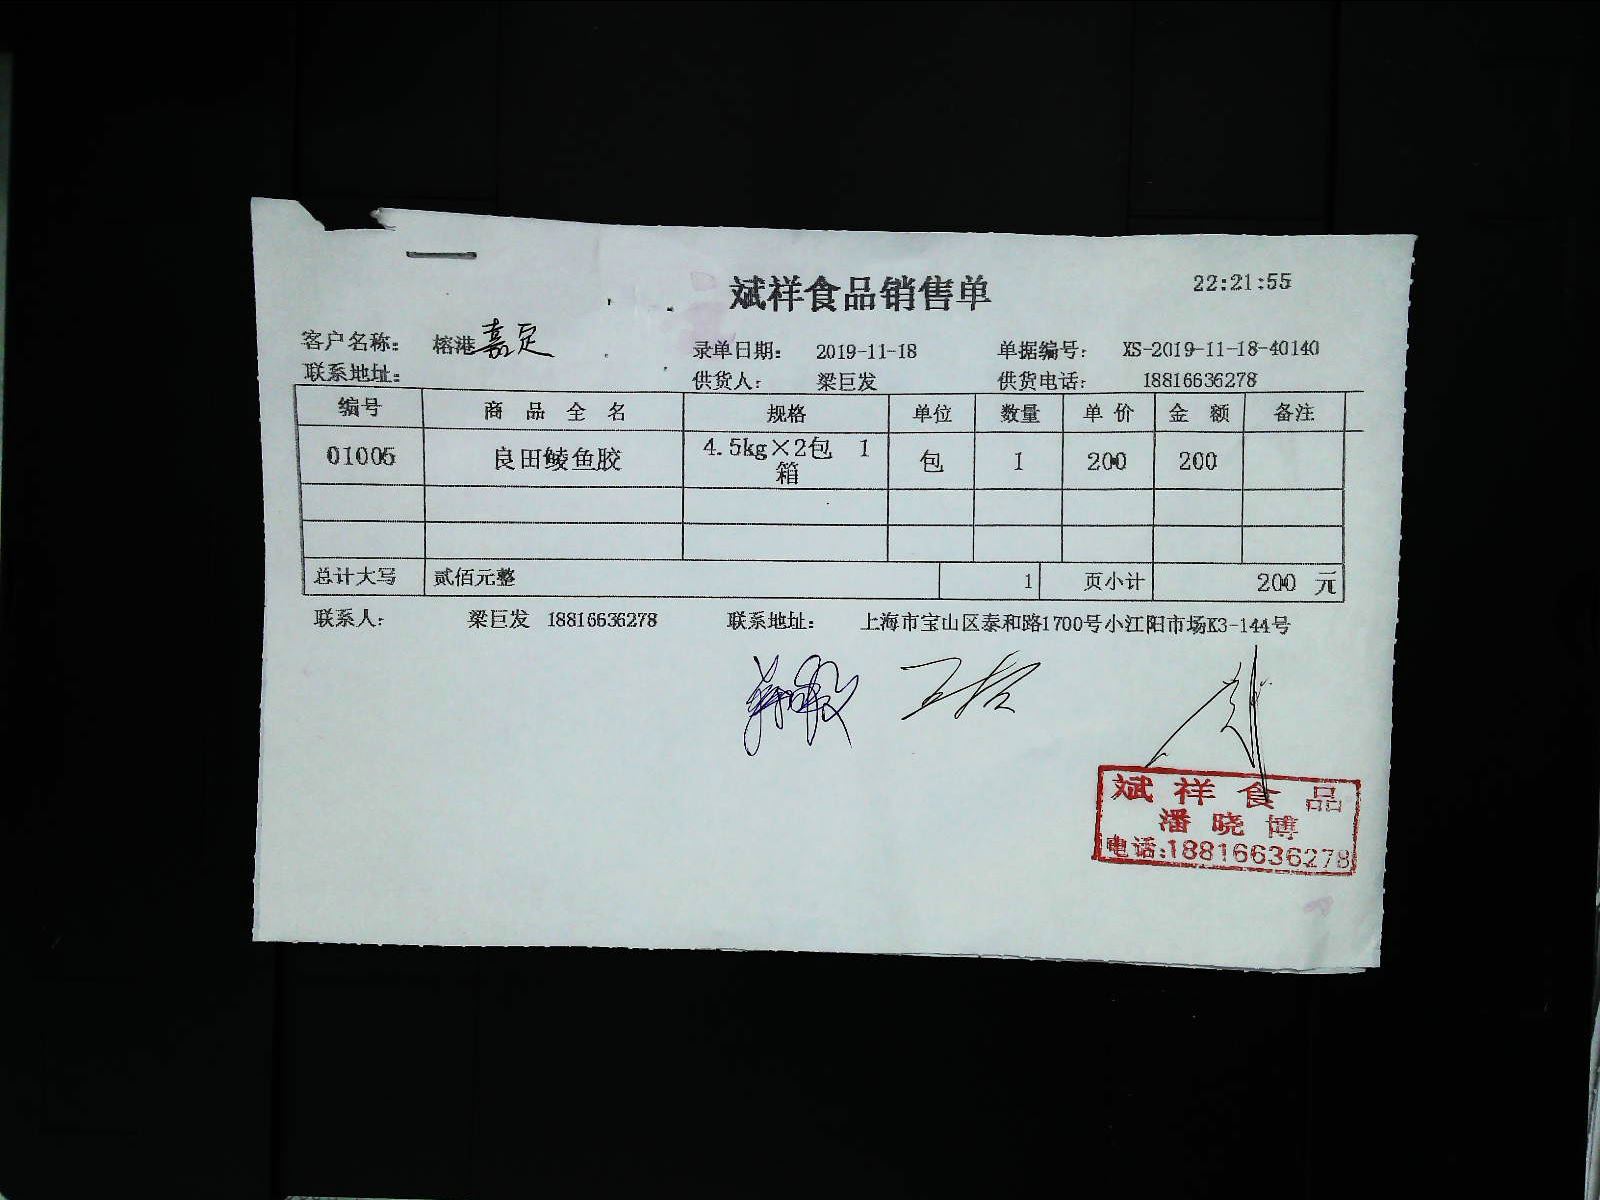 斌祥食品销售单 22:21:55
客户名称： 榕港嘉定 录单日期： 2019-11-18 单据编号： XS-2019-11-18-40140
联系地址： 供货人： 梁巨发 供货电话： 18816636278
编号 商品全名 规格 单位 数量 单价 金额 备注
01005 良田鲮鱼胶 4.5kg×2包 1箱 包 1 200 200
总计大写 贰佰元整 1 页小计 200 元
联系人： 梁巨发 18816636278 联系地址： 上海市宝山区泰和路1700号小江阳市场K3-144号
斌祥食品
潘晓博
电话:18816636278